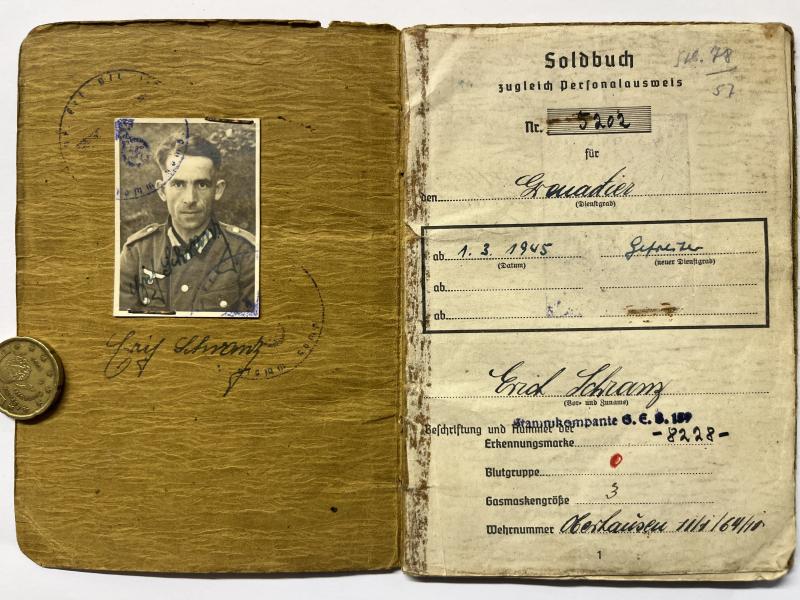 Erich Schranz
Soldbuch
78
57
zugleich Personalausweis
Nr. 5202
für
den Grenadier
(Dienstgrad)
ab 1. 3. 1945 Gefreiter
(Datum) (neuer Dienstgrad)
ab
ab
Erich Schranz
(Vor- und Zuname)
Stammkompanie G. E. B.
Beschriftung und Nummer der
Erkennungsmarke -8228-
Blutgruppe 0
Gasmaskengröße 3
Wehrnummer Oberhausen
1